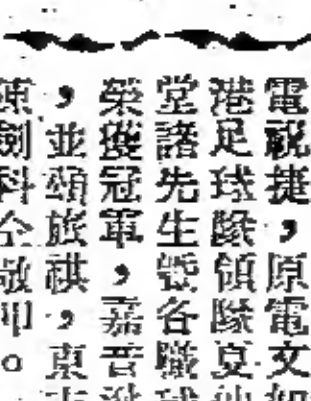 電祝捷，原電文
港足球隊領隊夏
堂諸先生曁各職
榮獲冠軍，嘉音
，並頌旅祺，東
陳劍科仝敬叩。